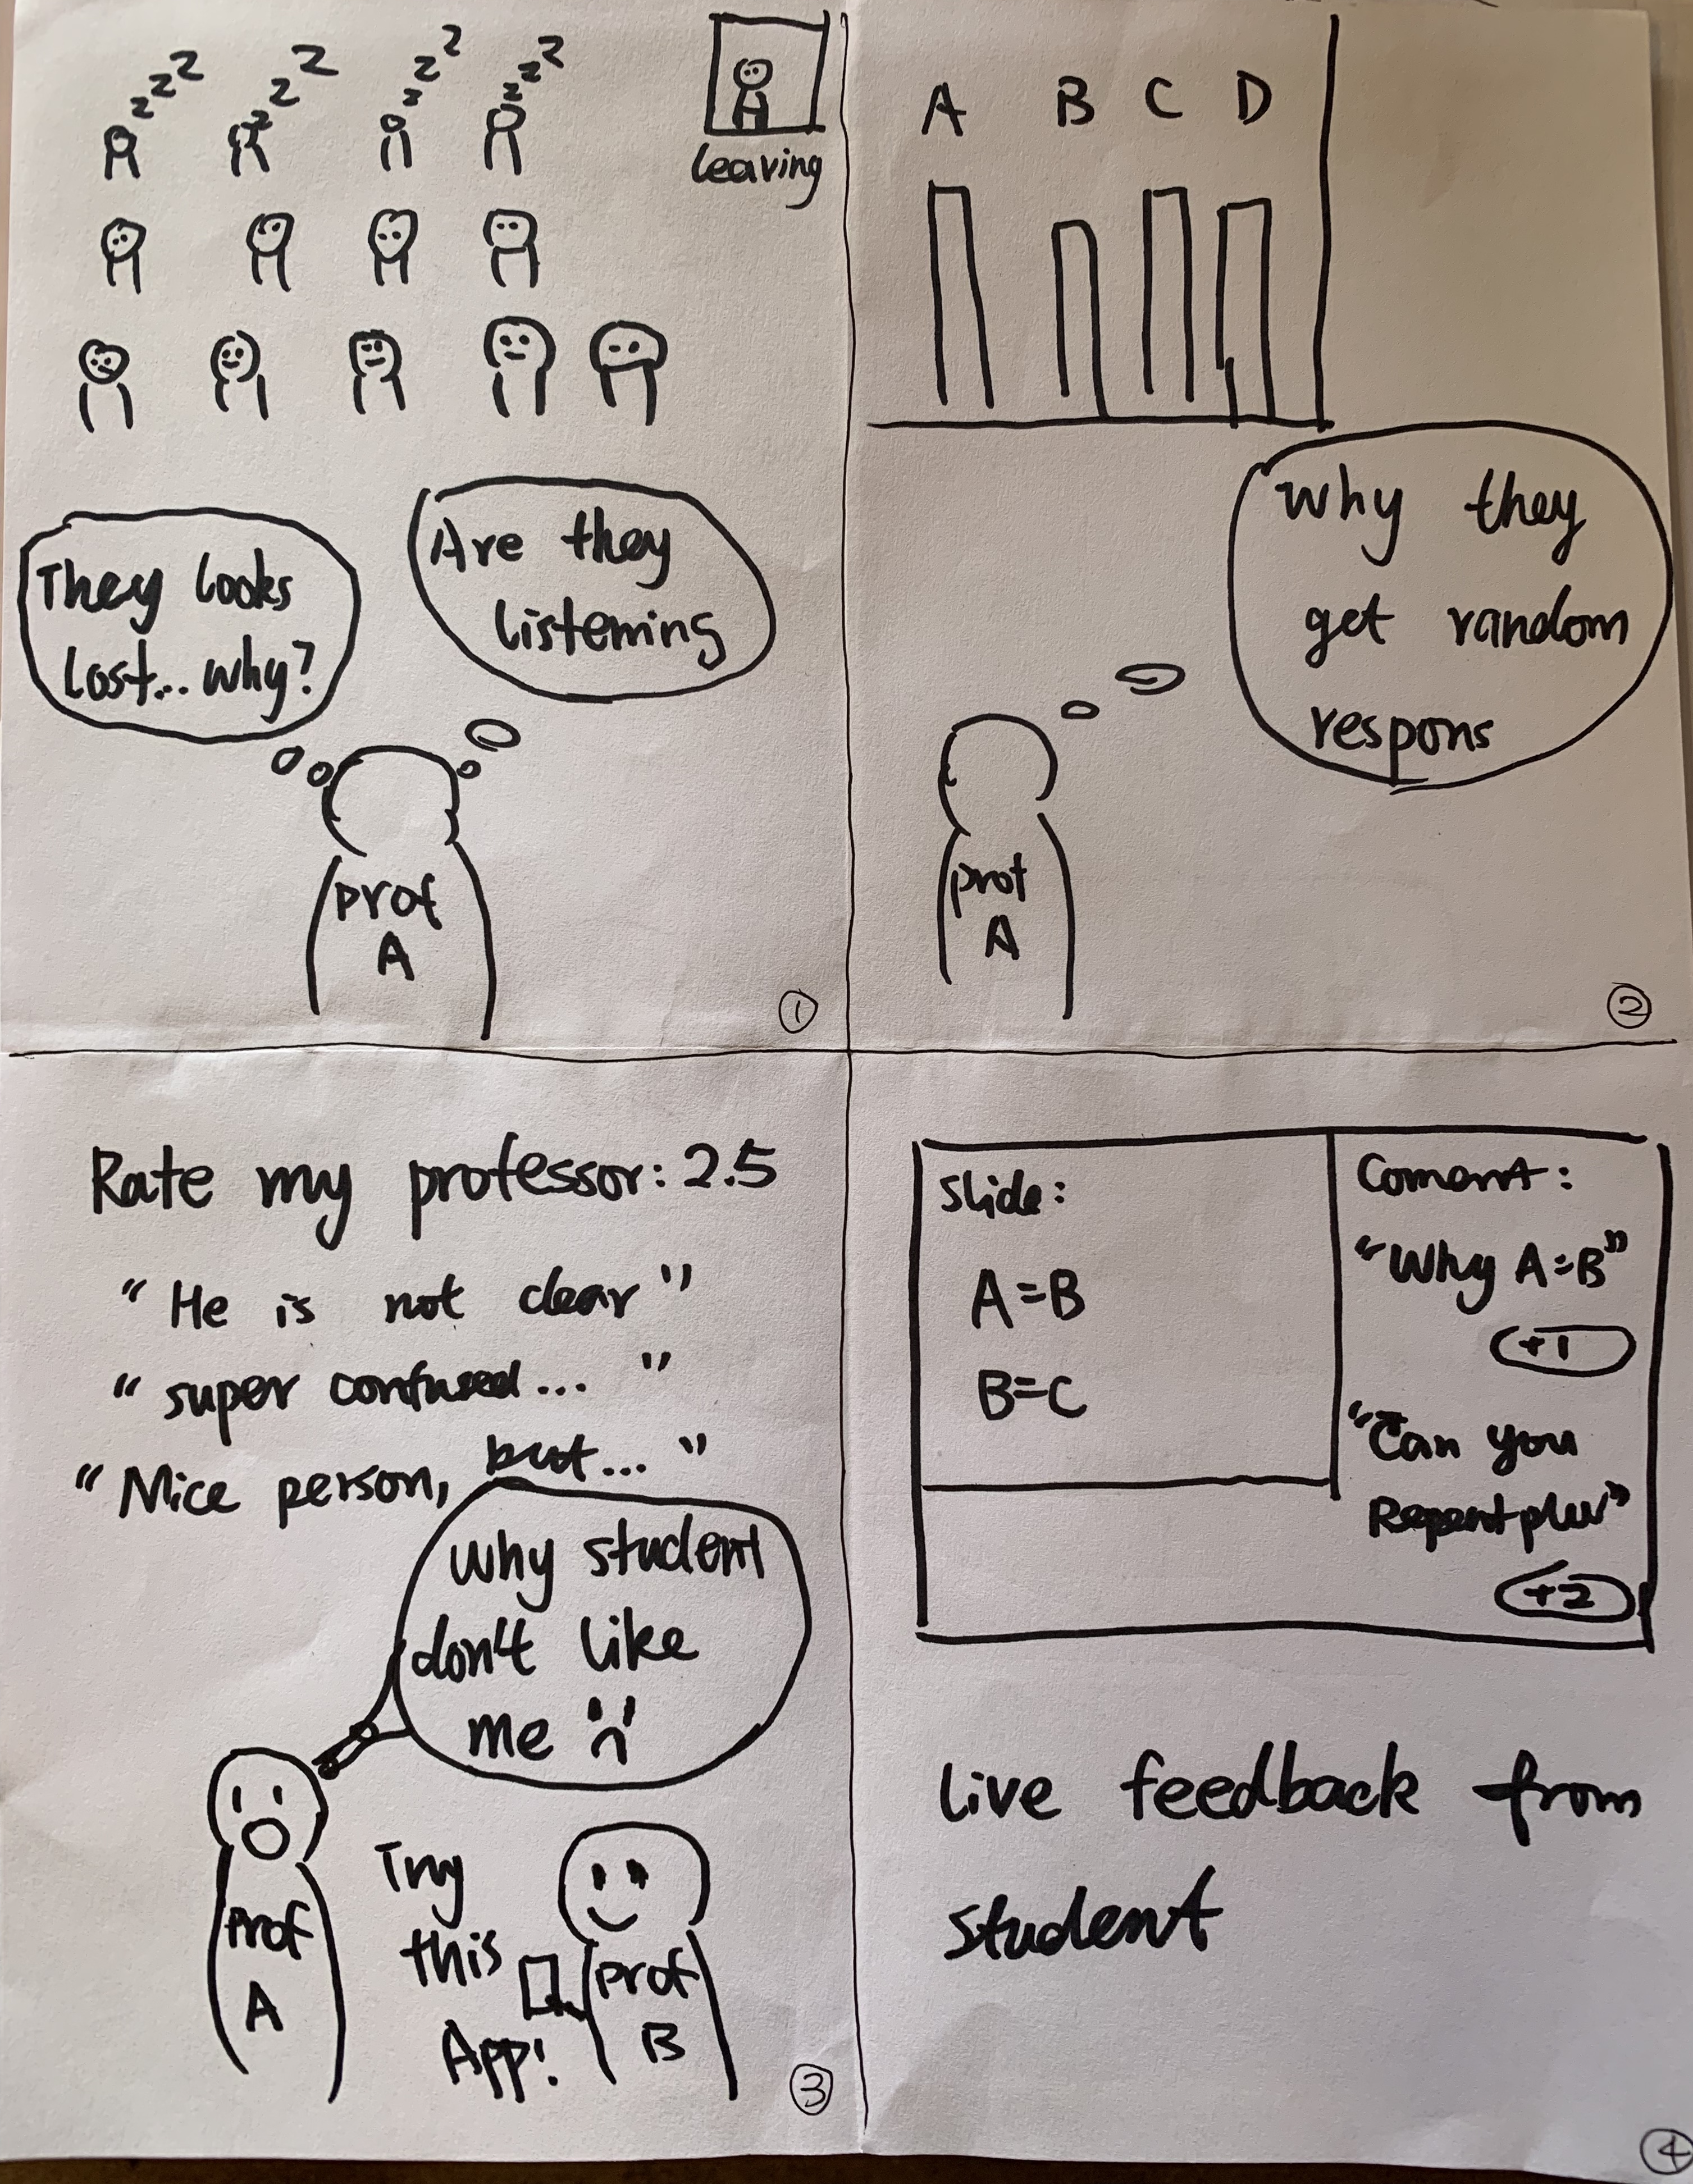 zzzz
zzz
zzz
zzzz
leaving
They looks
lost... why?
Are they
listening
prof
A
1
A B C D
why they
get random
respons
prof
A
2
Rate my professor: 2.5
"He is not clear"
"super confused..."
"Nice person, but..."
why student
don't like
me
Prof
A
Try
this
App!
prof
B
3
Slide:
A=B
B=C
Coment:
"Why A=B"
+1
"Can you
Repeat
+2
live feedback from
student
4